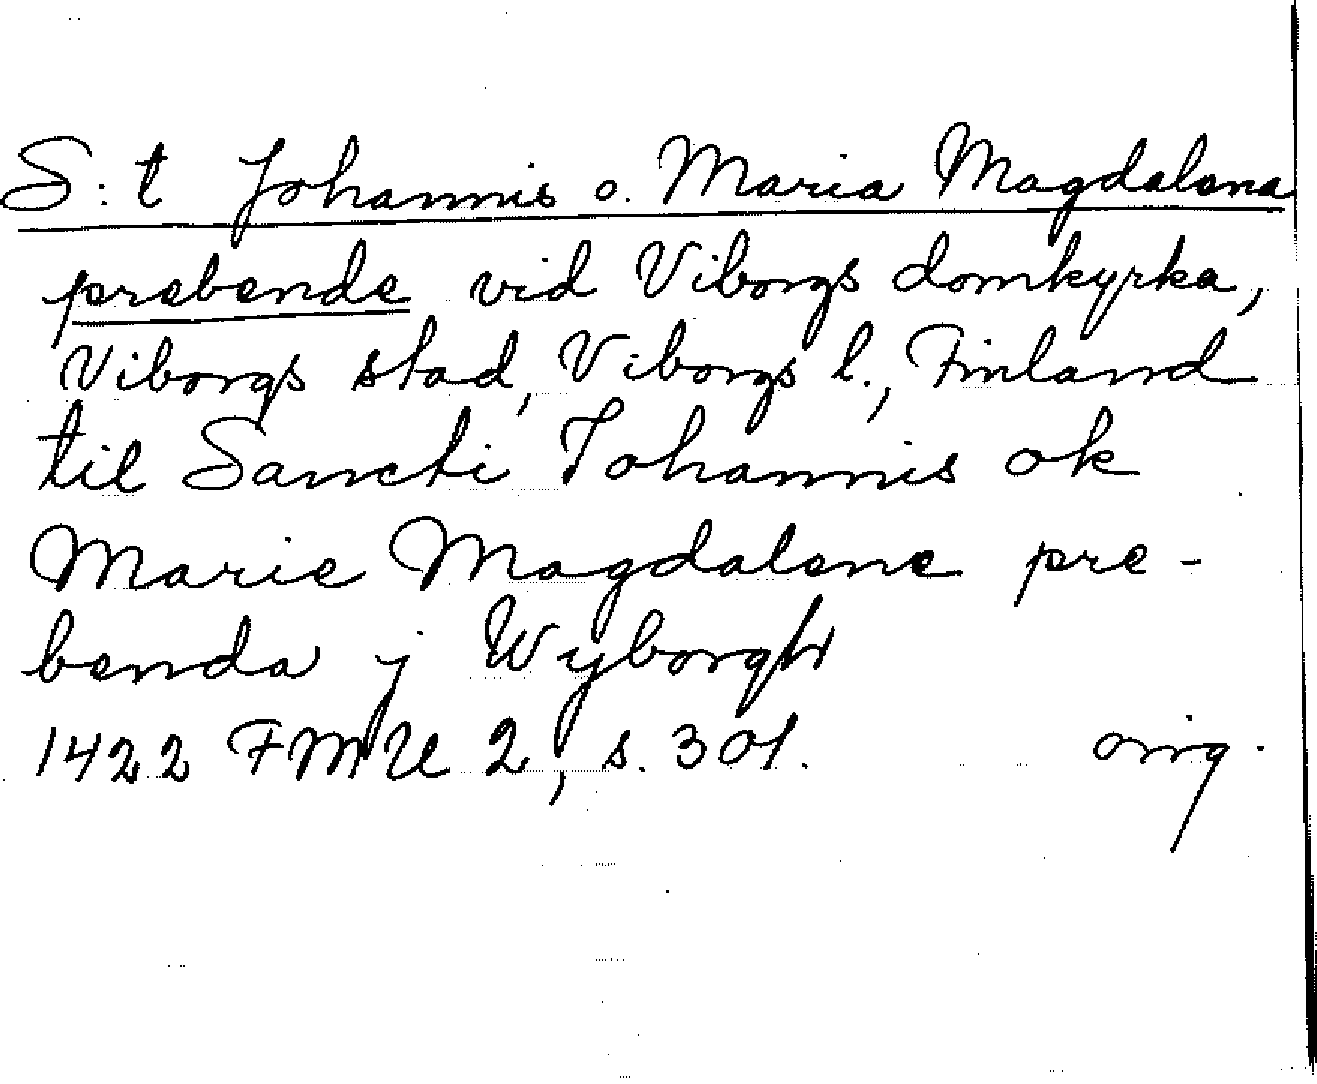 S:t Johannis o. Maria Magdalena
prebende vid Viborgs domkyrka,
Viborgs stad, Viborgs l., Finland
til Sancti Johannis ok
Marie Magdalene pre-
benda j Wyborgh
1422 FMU 2, s. 301. orig.